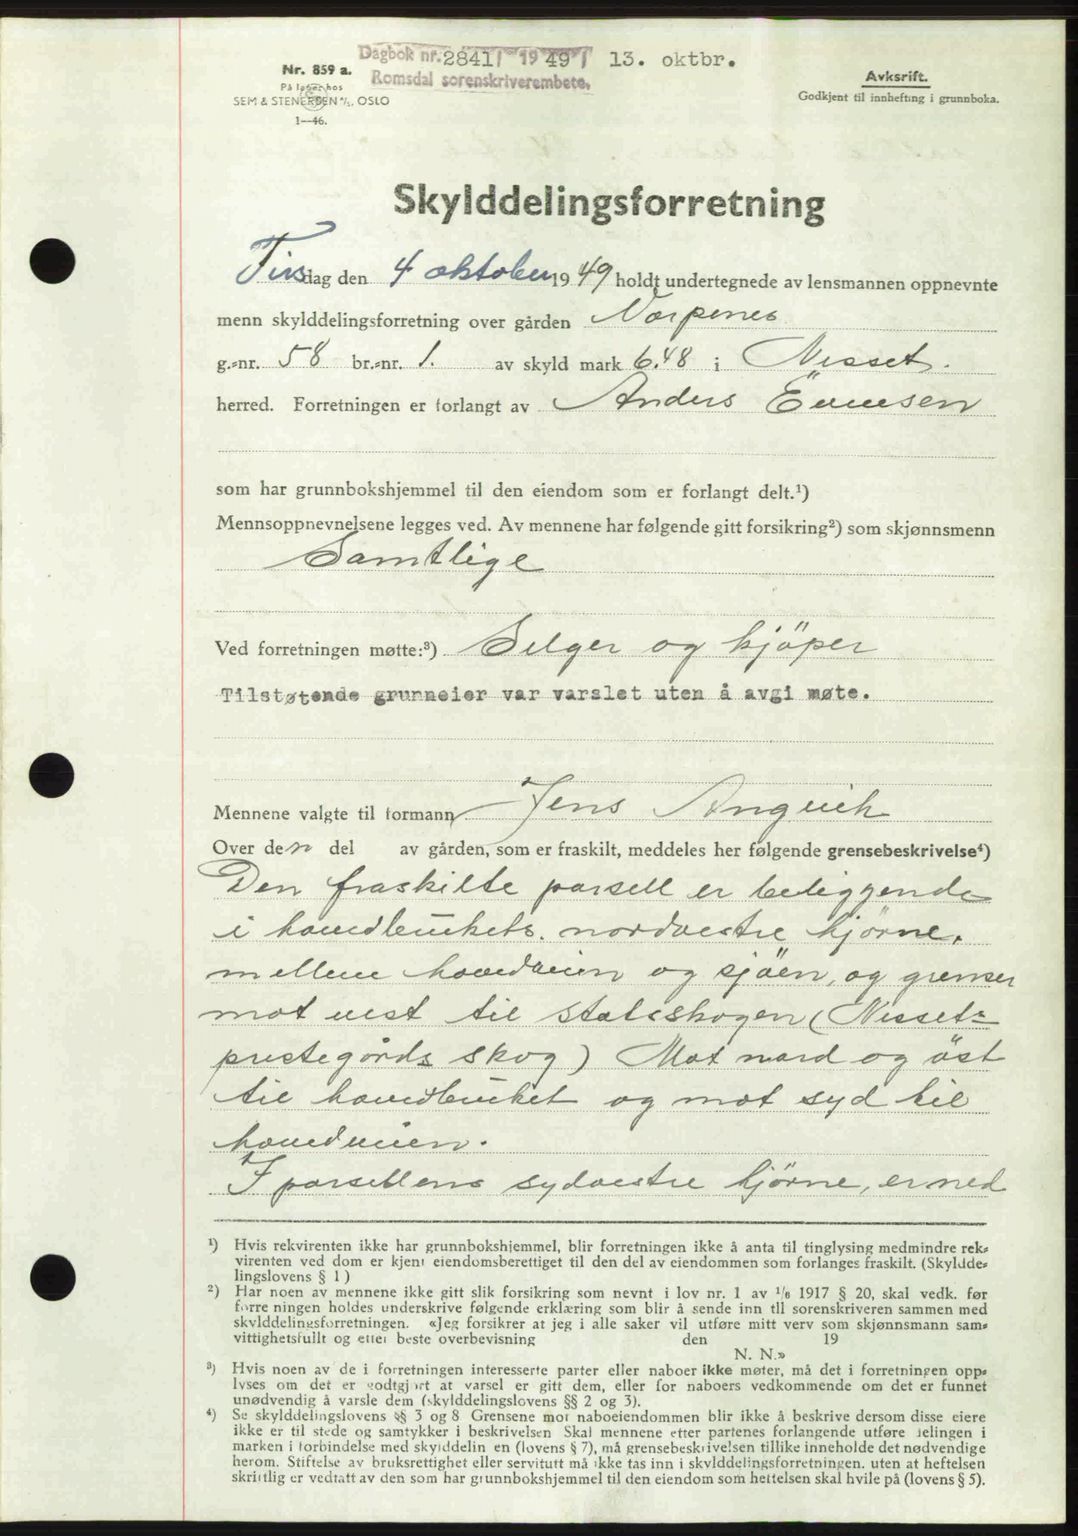 Dagbok nr. 2841 / 19 49 / 13. oktbr.
Romsdal sorenskriverembete.
Nr. 859 a.
På lager hos
SEM & STENERSEN A/S, OSLO
1—46.
Avksrift.
Godkjent til innhefting i grunnboka.
Skylddelingsforretning
Tirsdag den 4 oktober 1949 holdt undertegnede av lensmannen oppnevnte
menn skylddelingsforretning over gården Norpenes
g.=nr. 58 br.=nr. 1. av skyld mark 6.48 i Nesset.
herred. Forretningen er forlangt av Anders Evensen
som har grunnbokshjemmel til den eiendom som er forlangt delt.¹)
Mennsoppnevnelsene legges ved. Av mennene har følgende gitt forsikring²) som skjønnsmenn
Samtlige
Ved forretningen møtte:³) Selger og kjöper
Tilstøtende grunneier var varslet uten å avgi møte.
Mennene valgte til formann Jens Angvik
Over den del av gården, som er fraskilt, meddeles her følgende grensebeskrivelse⁴)
Den fraskilte parsell er beliggende
i hovedbrukets nordvestre hjörne,
mellem hovedveien og sjöen, og grenser
mot vest til statsskogen (Nesset=
prestegårds skog) Mot nord og öst
til hovedbruket og mot syd til
hovedveien.
I parsellens sydvestre hjörne, er ned
¹) Hvis rekvirenten ikke har grunnbokshjemmel, blir forretningen ikke å anta til tinglysing medmindre rek=
virenten ved dom er kjent eiendomsberettiget til den del av eiendommen som forlanges fraskilt. (Skyldde=
lingslovens § 1)
²) Har noen av mennene ikke gitt slik forsikring som nevnt i lov nr. 1 av 1/6 1917 § 20, skal vedk. før
forretningen holdes underskrive følgende erklæring som blir å sende inn til sorenskriveren sammen med
skylddelingsforretningen. «Jeg forsikrer at jeg i alle saker vil utføre mitt verv som skjønnsmann sam=
vittighetsfullt og etter beste overbevisning den 19
N. N.»
³) Hvis noen av de i forretningen interesserte parter eller naboer ikke møter, må det i forretningen opp=
lyses om det er godtgjort at varsel er gitt dem, eller for naboers vedkommende om det er funnet
unødvendig å varsle dem (skylddelingslovens §§ 2 og 3).
⁴) Se skylddelingslovens §§ 3 og 8. Grensene mot naboeiendommen blir ikke å beskrive dersom disse eiere
ikke er til stede og samtykker i beskrivelsen Skal mennene etter partenes forlangende utføre delingen i
marken i forbindelse med skylddelingen (lovens § 7), må grensebeskrivelsen tillike inneholde det nødvendige
herom. Stiftelse av bruksrettighet eller servitutt må ikke tas inn i skylddelingsforretningen. uten at heftelsen
skriftlig er vedtatt av den som har grunnbokshjemmel til den eiendom som heftelsen skal hvile på (lovens § 5).